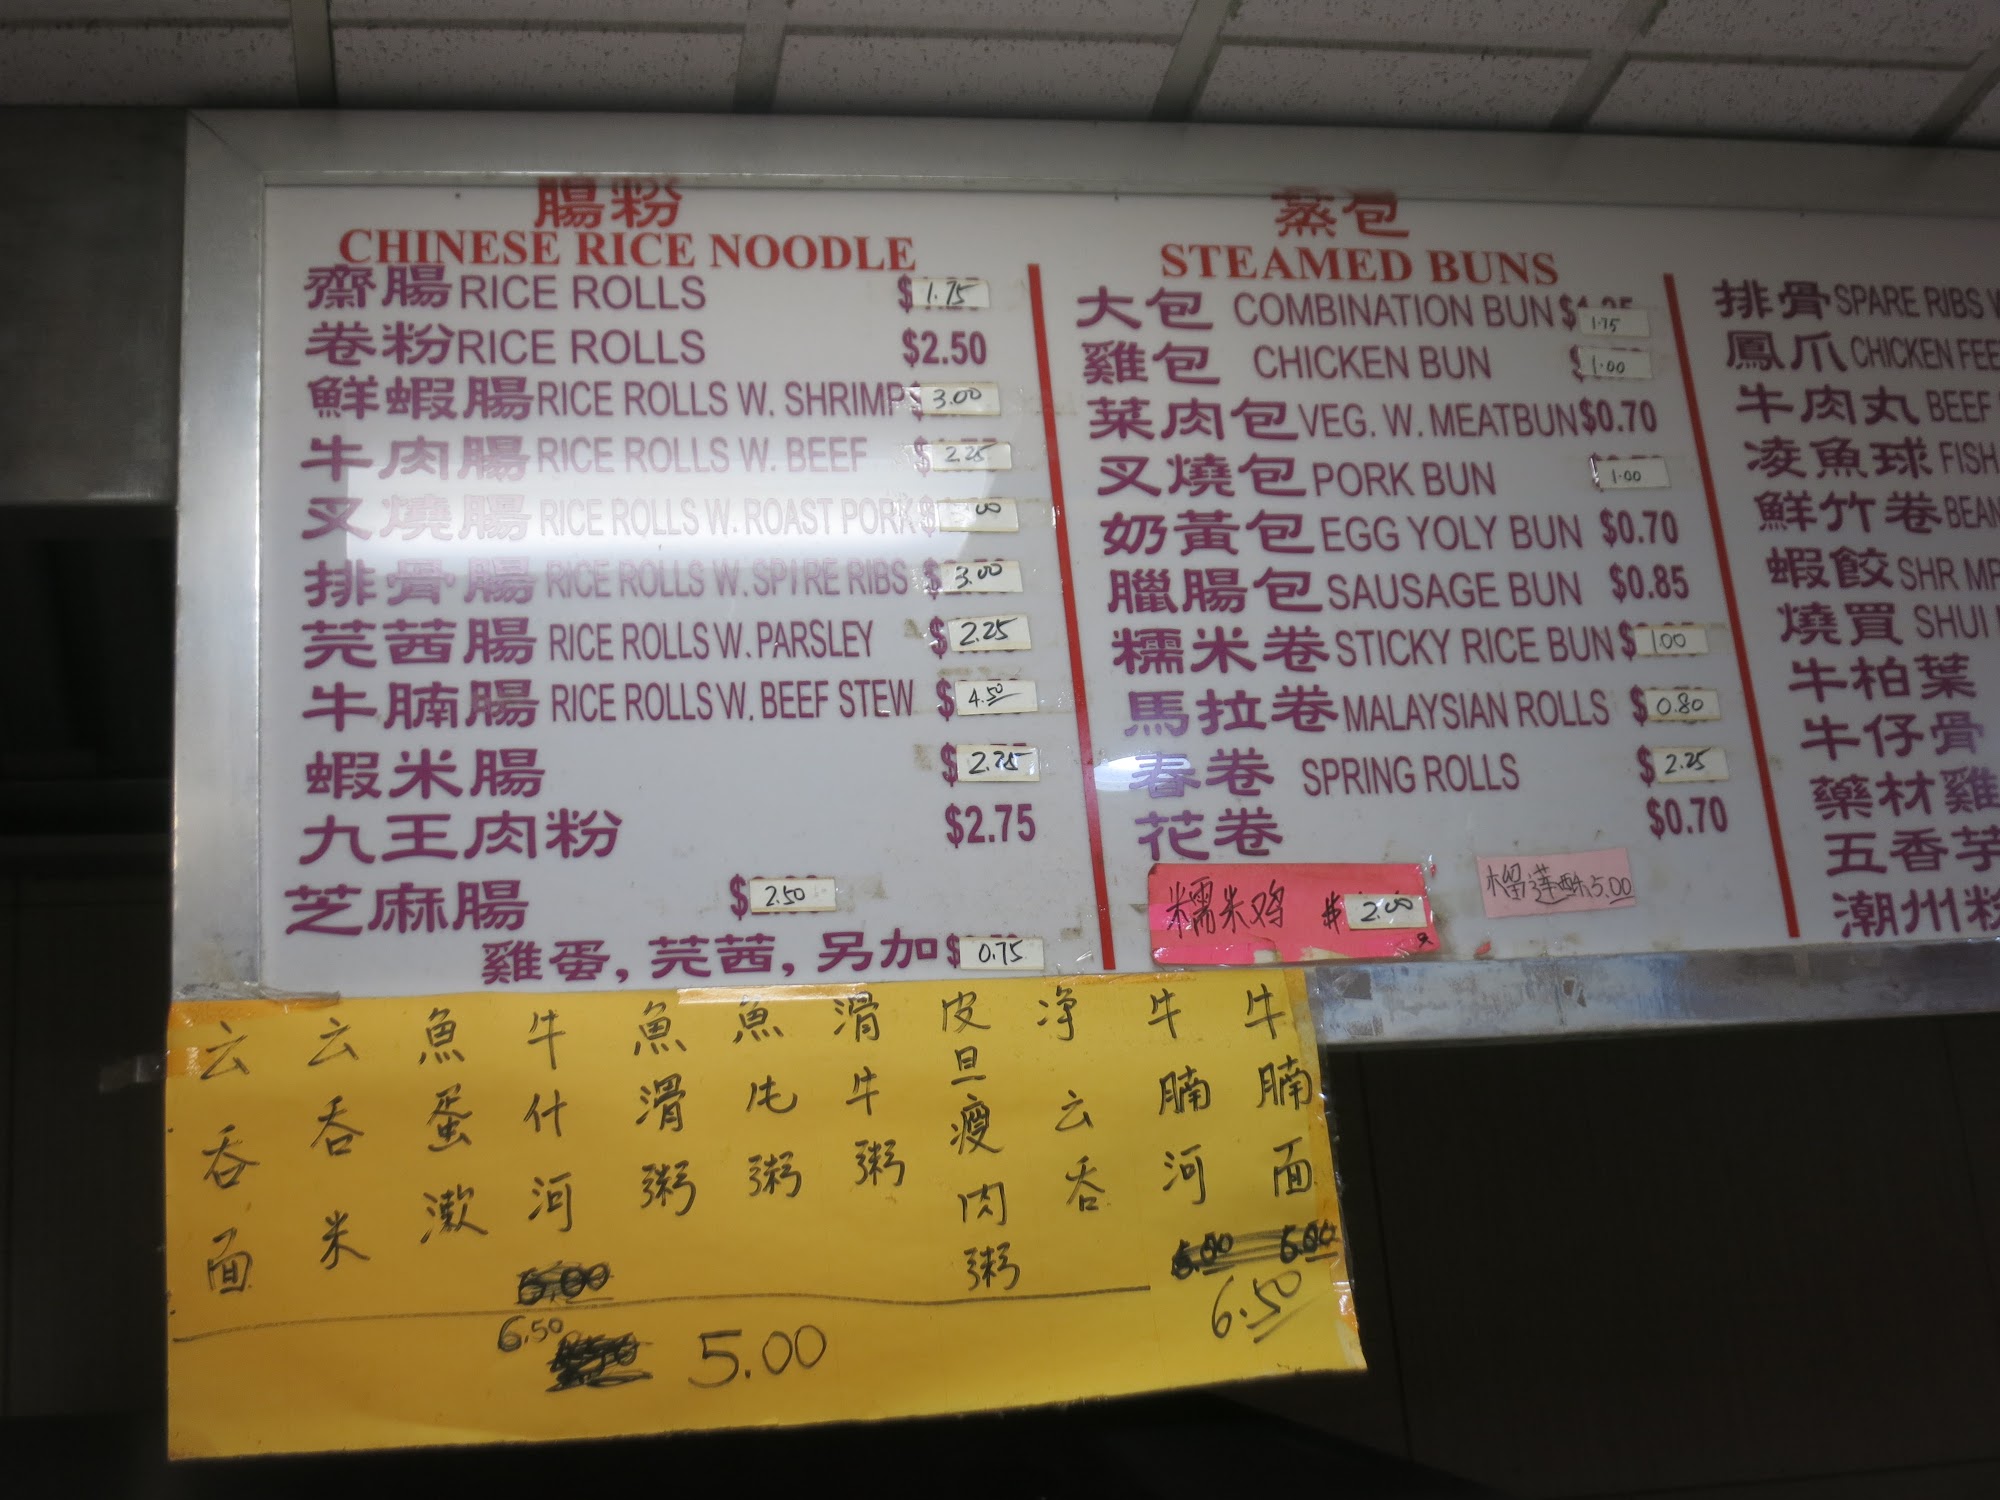 腸粉
CHINESE RICE NOODLE
齋腸 RICE ROLLS $1.75
卷粉 RICE ROLLS $2.50
鮮蝦腸 RICE ROLLS W. SHRIMP $3.00
牛肉腸 RICE ROLLS W. BEEF $2.25
叉燒腸 RICE ROLLS W. ROAST PORK $
排骨腸 RICE ROLLS W. SPIRE RIBS $3.00
芫茜腸 RICE ROLLS W. PARSLEY $2.25
牛腩腸 RICE ROLLS W. BEEF STEW $4.50
蝦米腸 $
九王肉粉 $2.75
芝麻腸 $2.50
雞蛋,芫茜,另加 $0.75
蒸包
STEAMED BUNS
大包 COMBINATION BUN $1.75
雞包 CHICKEN BUN $1.00
菜肉包 VEG. W. MEATBUN $0.70
叉燒包 PORK BUN 1.00
奶黃包 EGG YOLY BUN $0.70
臘腸包 SAUSAGE BUN $0.85
糯米卷 STICKY RICE BUN $1.00
馬拉卷 MALAYSIAN ROLLS $0.80
春卷 SPRING ROLLS $2.25
花卷 $0.70
糯米鸡 $2.00
榴莲酥5.00
排骨 SPARE RIBS
鳳爪 CHICKEN
牛肉丸 BEEF
凌魚球 FISH
鮮竹卷
蝦餃 SHR MP
燒買 SHUI
牛柏葉
牛仔骨
藥材雞
五香芋
潮州粉
云吞面
云吞米
魚蛋
牛什河
魚滑粥
魚粥
滑牛粥
皮旦瘦肉粥
净云吞
牛腩河
牛腩面
6.50
5.00
6.50